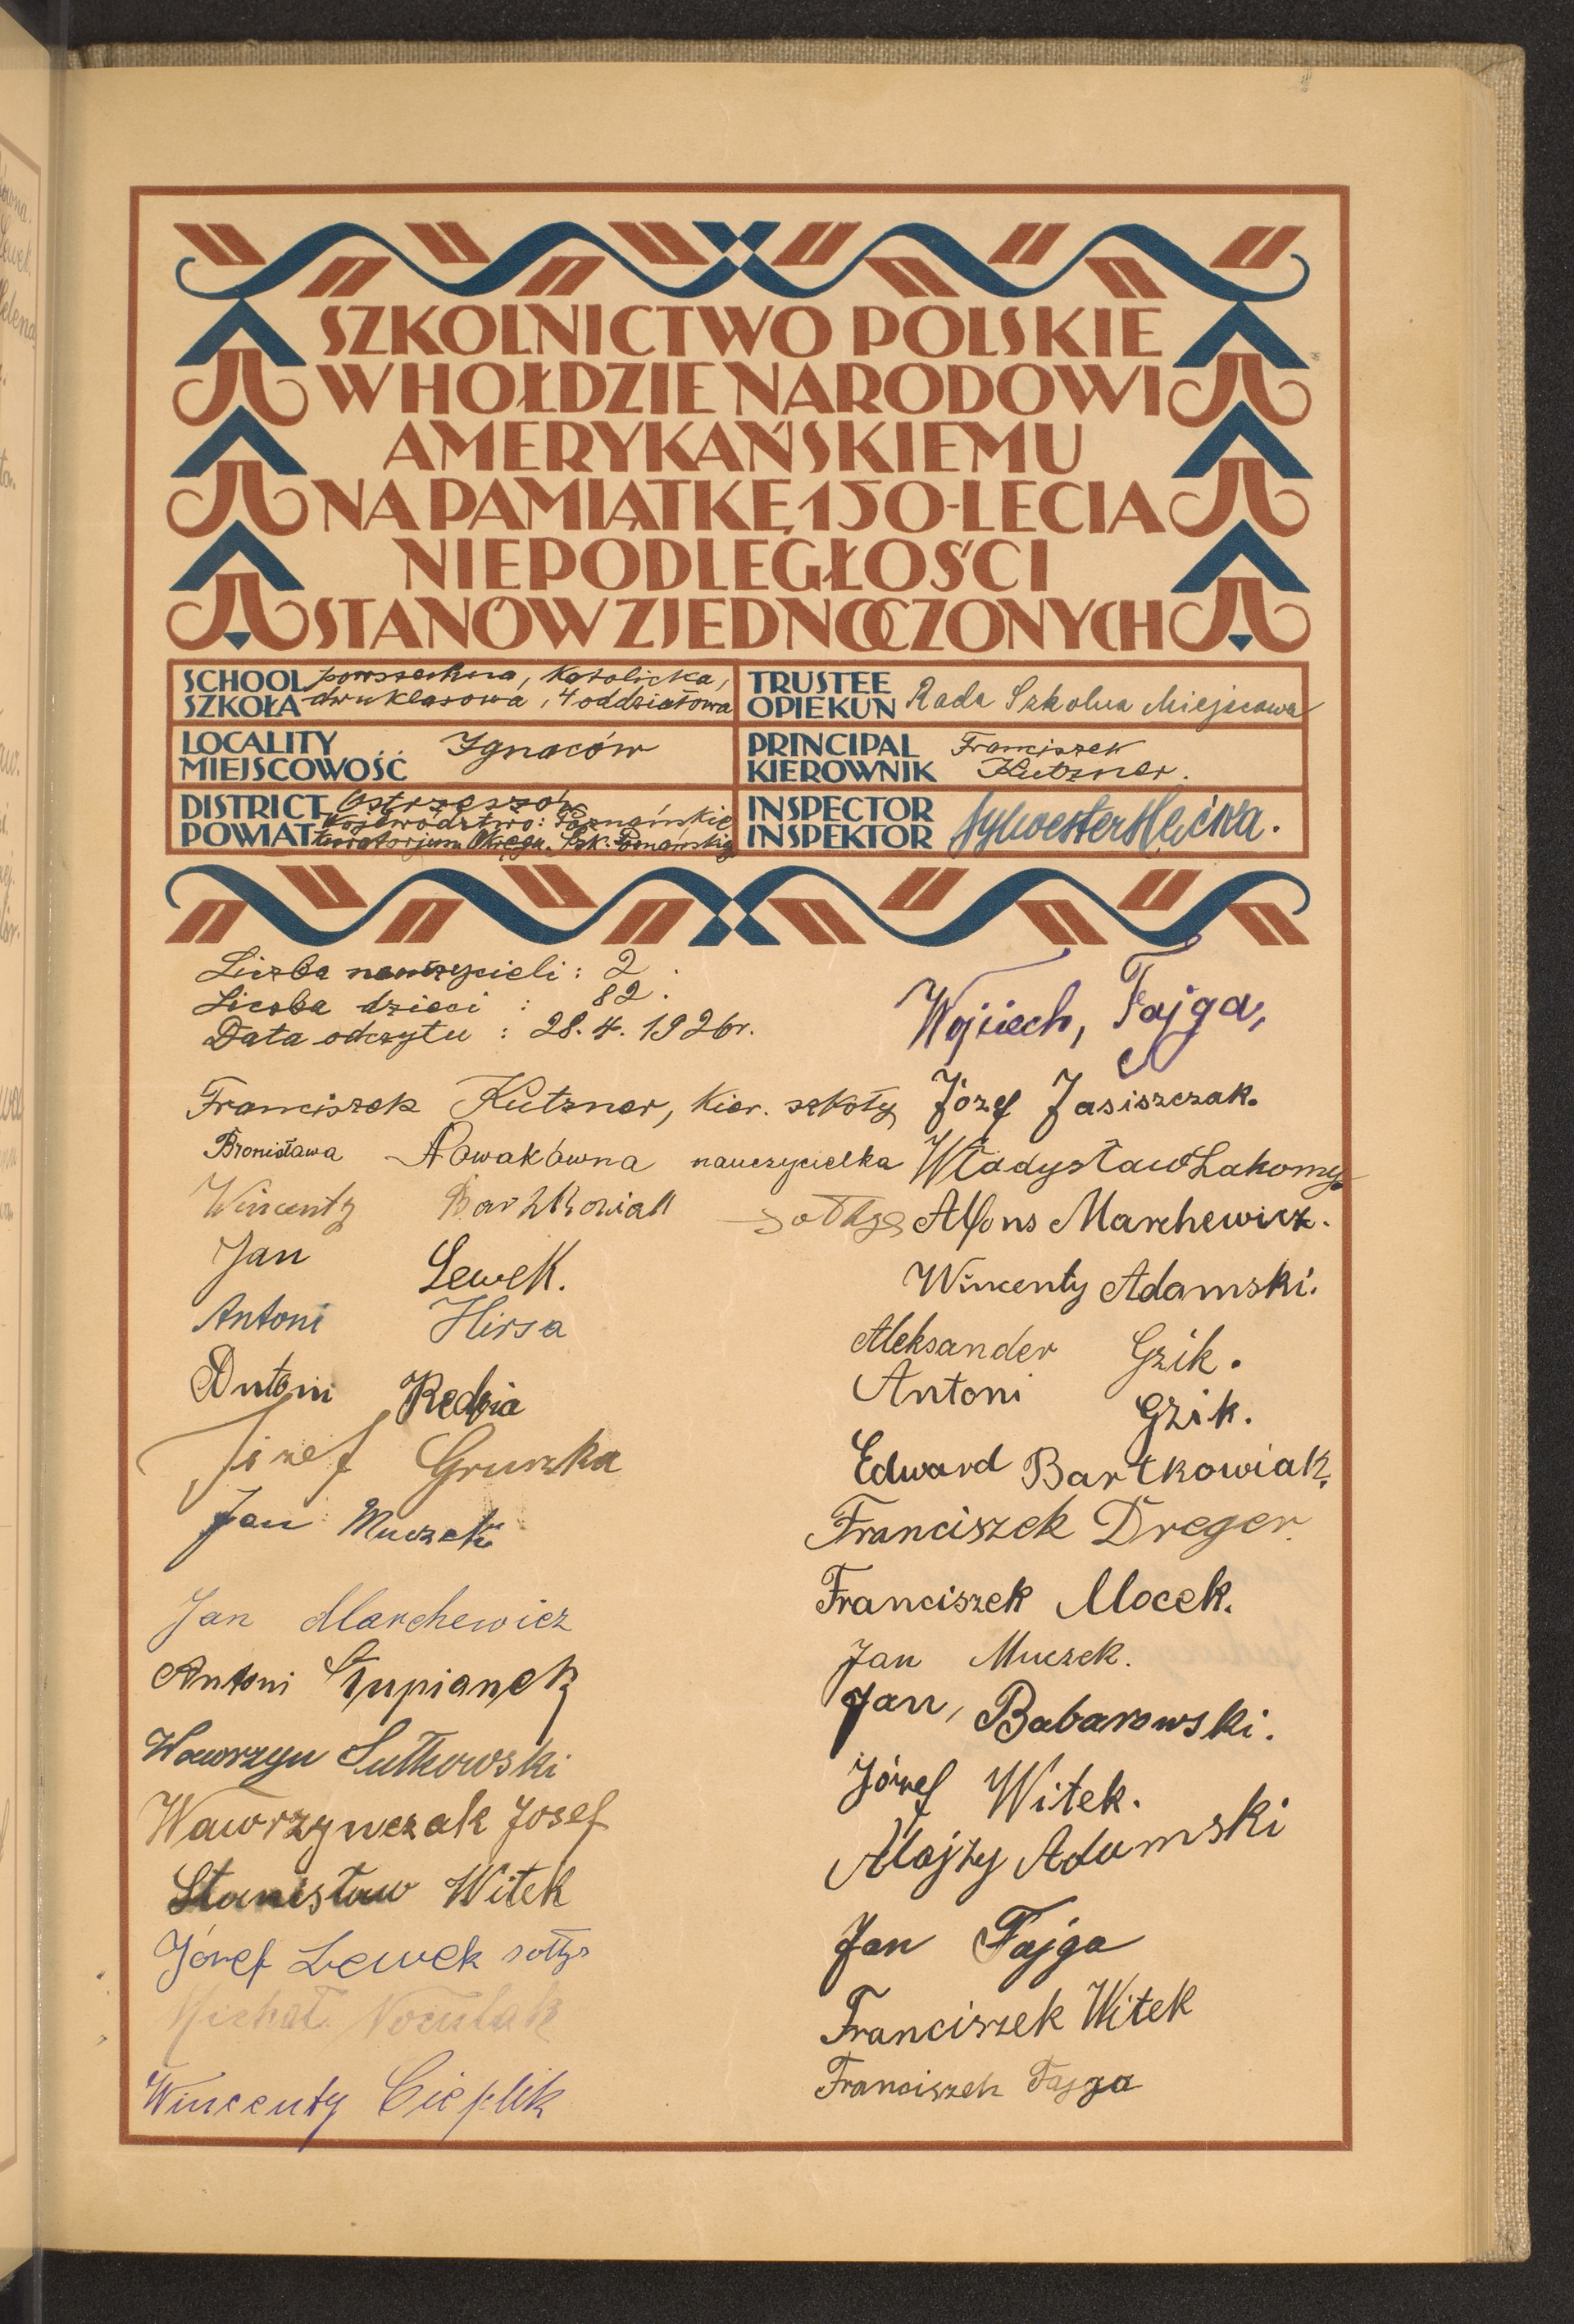 SZKOLNICTWO POLSKIE
W HOŁDZIE NARODOWI
AMERYKAŃSKIEMU
NA PAMIĄTKĘ 150-LECIA
NIEPODLEGŁOŚCI
STANÓW ZJEDNOCZONYCH
SCHOOL powszechna, Katolicka,
SZKOŁA dwuklasowa, 4 oddziałowa
TRUSTEE
OPIEKUN Rada Szkolna Miejscowa
LOCALITY
MIEJSCOWOŚĆ Ignaców
PRINCIPAL Franciszek
KIEROWNIK Kutzner.
DISTRICT Ostrzeszów
POWIAT Województwo: Poznańskie
Kuratorjum Okręgu. Szk. Poznańskie
INSPECTOR
INSPEKTOR Sylwester
Liczba nauczycieli: 2.
Liczba dzieci : 82.
Data odczytu : 28. 4. 1926r.
Franciszek Kutzner, kier. szkoły
Bronisława Nowakówna nauczycielka
Wincenty Bartkowiak sołtys
Jan Lewek.
Antoni Hirsa
Antoni Kędzia
Józef Gruszka
Jan Muczek
Jan Marchewicz
Antoni Słupianek
Wawrzyn Sutkowski
Wawrzynczak Josef
Stanisław Witek
Józef Lewek sołtys
Michał
Wincenty Cieplik
Wojciech, Fajga,
Józef Jasiszczak.
Władysław Łakomy
Alfons Marchewicz.
Wincenty Adamski.
Aleksander Gzik.
Antoni Gzik.
Edward Bartkowiak.
Franciszek Dreger.
Franciszek Mocek.
Jan Muczek.
Jan, Babarowski.
Józef Witek.
Alojzy Adamski
Jan Fajga
Franciszek Witek
Franciszek Fajga